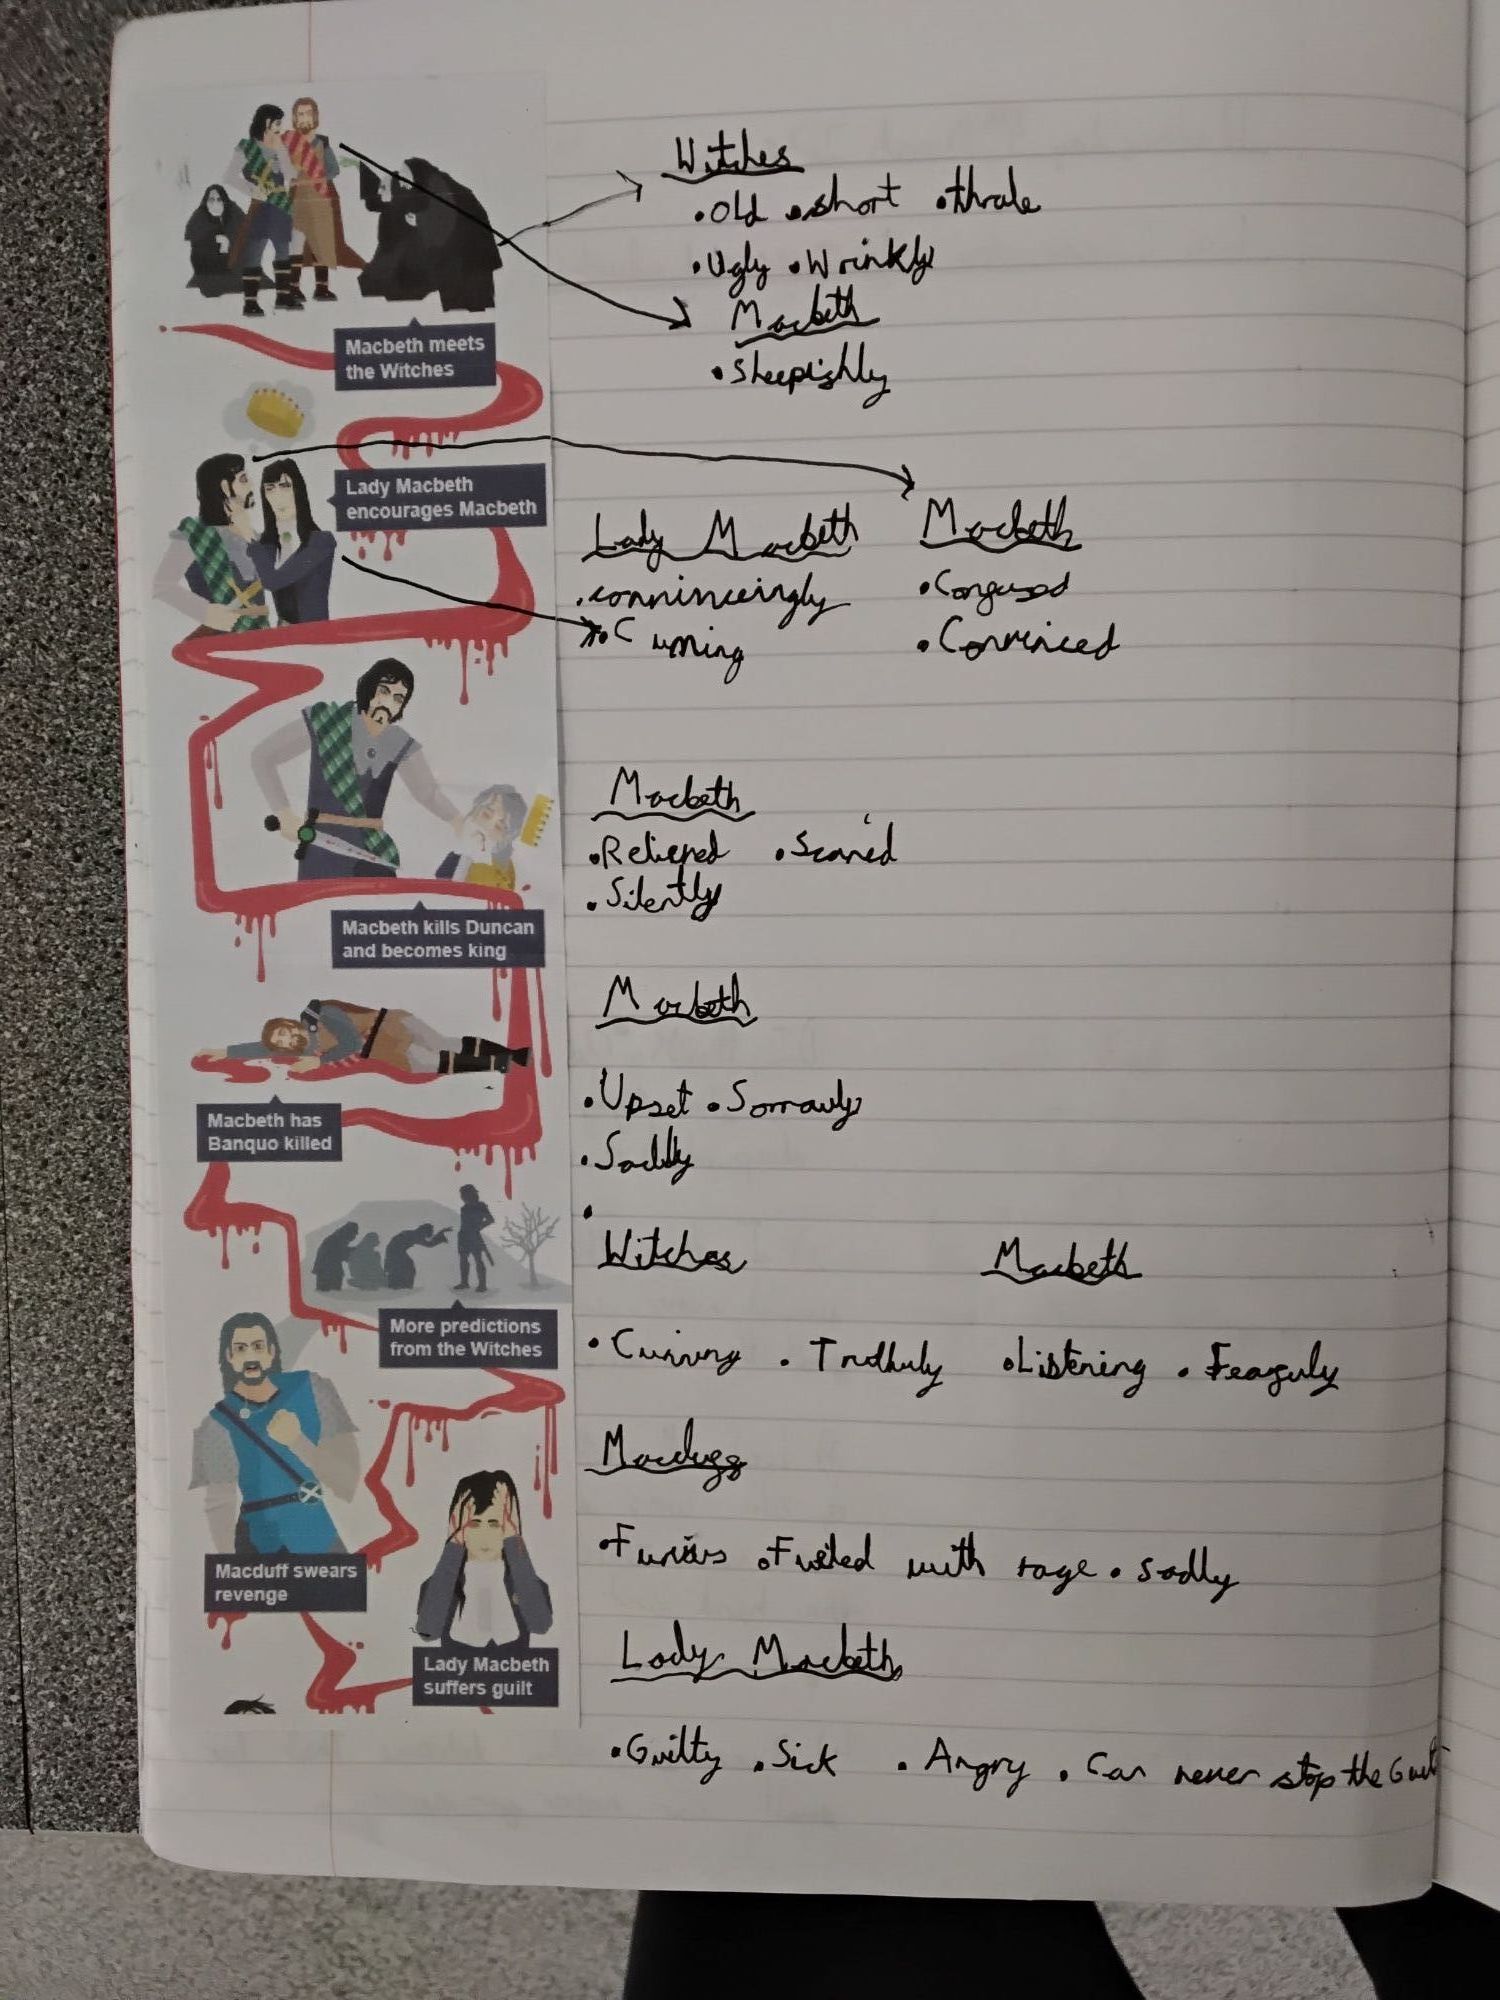 Witches
•Old •short •thrale
•Ugly •Wrinkly
Macbeth
•Sheepishly
Macbeth meets
the Witches
Lady Macbeth
encourages Macbeth
Lady Macbeth
•connincingly
•Cunning
Macbeth
•Confused
•Convinced
Macbeth
•Relieved •Scared
•Silently
Macbeth kills Duncan
and becomes king
Macbeth
•Upset •Sorrowly
•Sadly
•
Macbeth has
Banquo killed
Witches
•Cunning •Truthfuly
Macbeth
•Listening •Fearfuly
More predictions
from the Witches
Macduff
•Furious •Fueled with rage •Sadly
Macduff swears
revenge
Lady Macbeth
•Guilty •Sick •Angry •Can never stop the
Lady Macbeth
suffers guilt